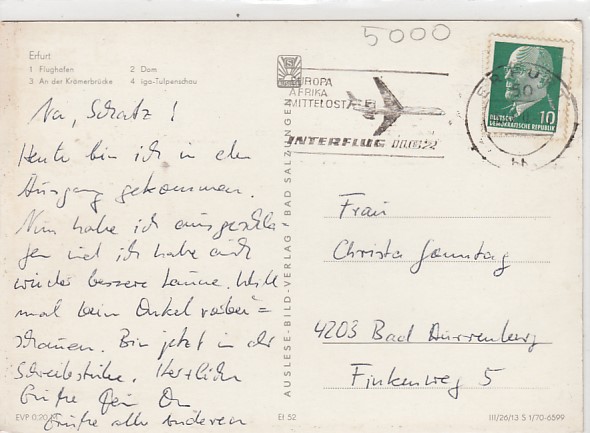 5000
Erfurt
1 Flughafen 2 Dom
3 An der Krämerbrücke 4 iga-Tulpenschau
EUROPA
AFRIKA
MITTELOST
INTERFLUG
ERFURT
10
DEUTSCHE
DEMOKRATISCHE REPUBLIK
Na, Schatz!
Heute bin ich in den
Ausgang gekommen.
Nun habe ich ausgeschla
fen und ich habe auch
wieder bessere Laune. Will
mal beim Onkel vorbei=
schauen. Bin jetzt in der
Schreibstube. Herzliche
Grüße
Grüße alle anderen
AUSLESE-BILD-VERLAG / BAD SALZUNGEN
Frau
Christa Sonntag
4203 Bad Dürrenberg
Finkenweg 5
EVP 0,20 M
EI 52
III/26/13 S 1/70-6599